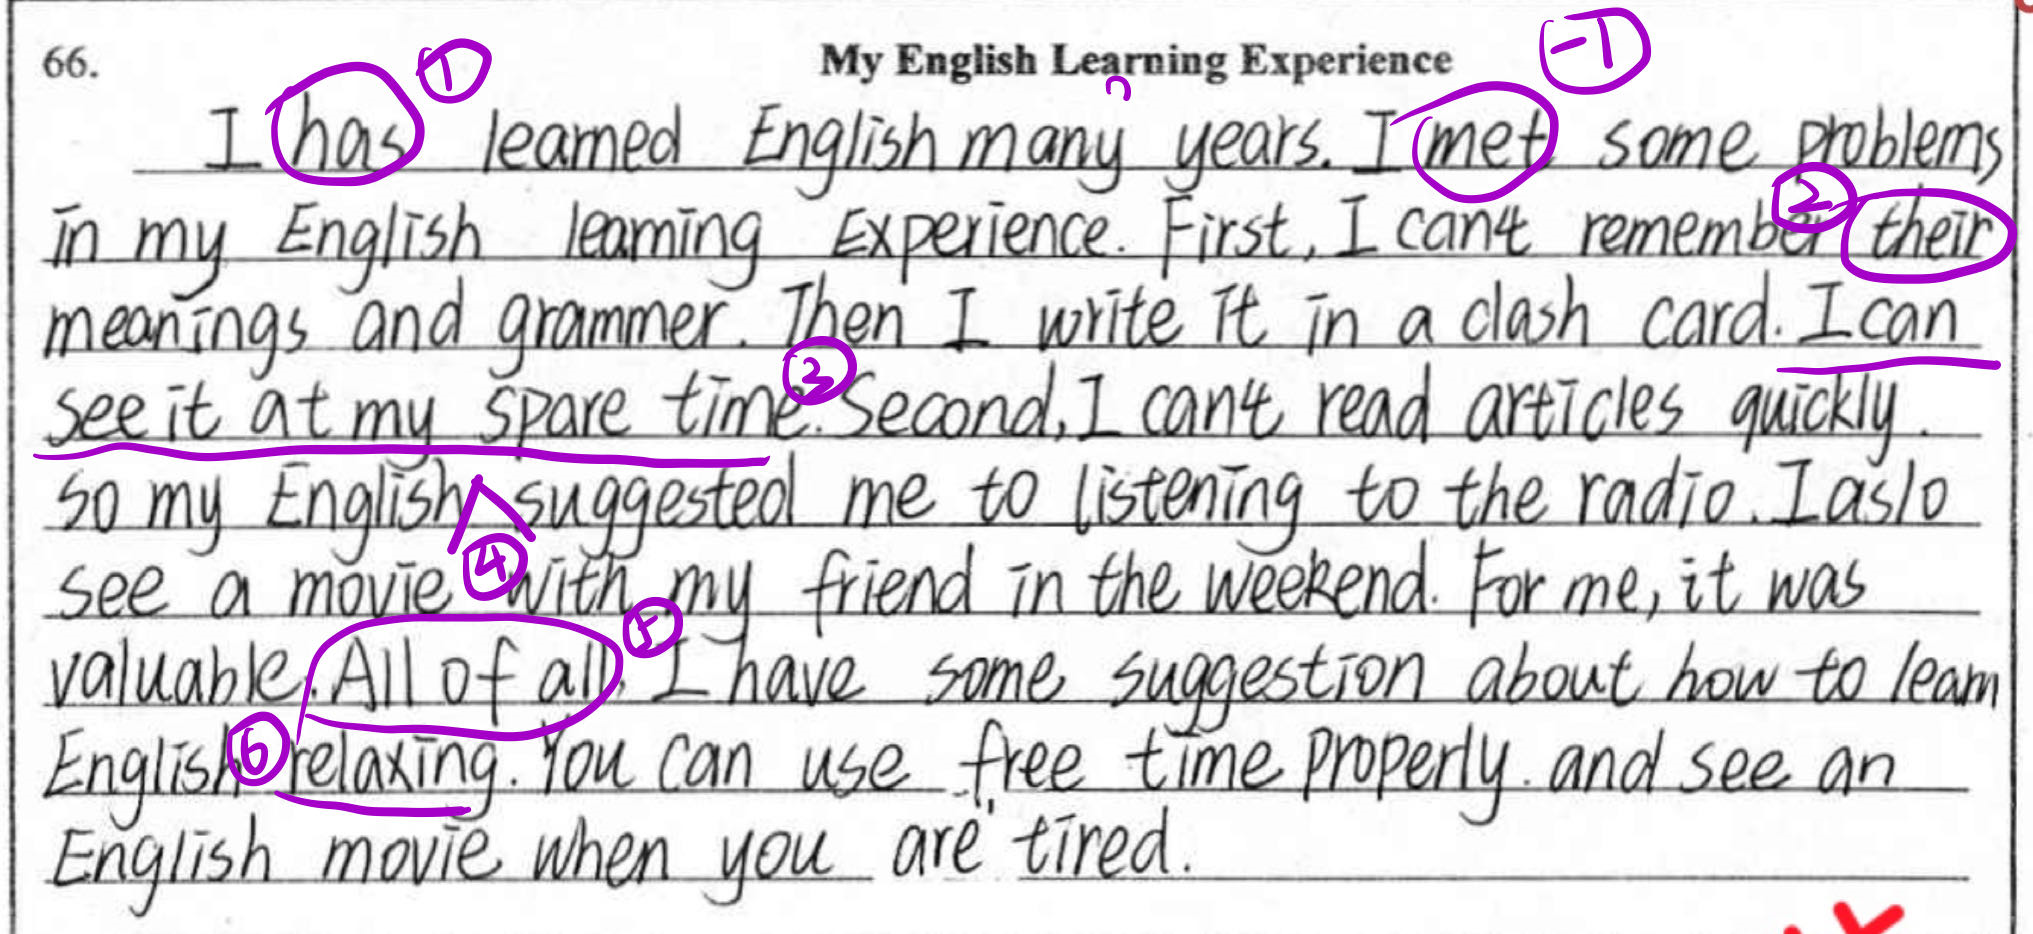 66. My English Learning Experience
① -1
I has learned English many years. I met some problems
in my English learning Experience. First, I can't remember ② their
meanings and grammer. Then I write it in a clash card. I can
see it at my spare time. ③ Second, I can't read articles quickly.
so my English suggested me to listening to the radio. I aslo
see a movie ④ with my friend in the weekend. For me, it was
valuable. All of all, ⑤ I have some suggestion about how to learn
English ⑥ relaxing. You can use free time properly. and see an
English movie when you are tired.